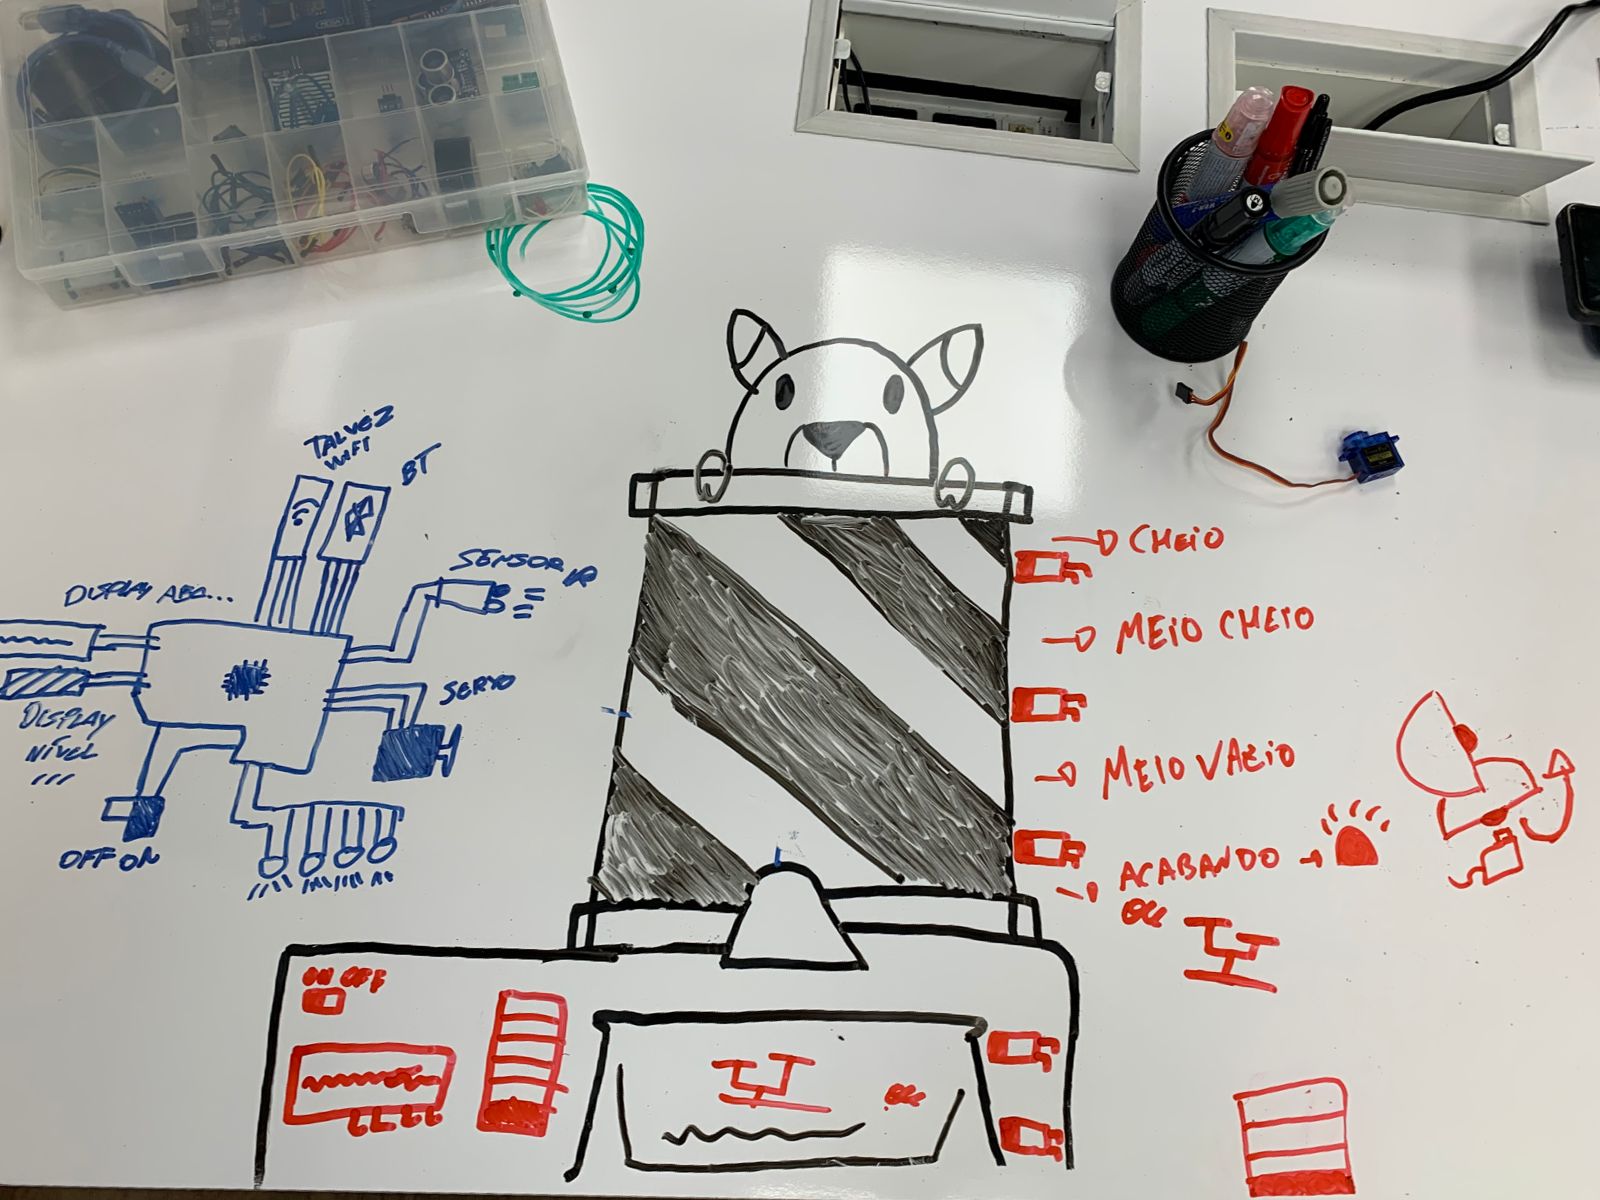 TALVEZ
WIFI
BT
SENSOR IR
DISPLAY ABC...
SERVO
DISPLAY
NÍVEL
OFF ON
CHEIO
MEIO CHEIO
MEIO VAZIO
ACABANDO
ON OFF